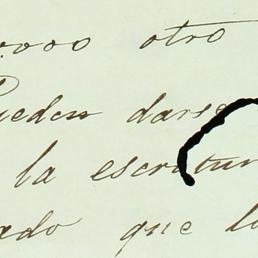 0000 otro
Pueden darse
la escritura
ado que la